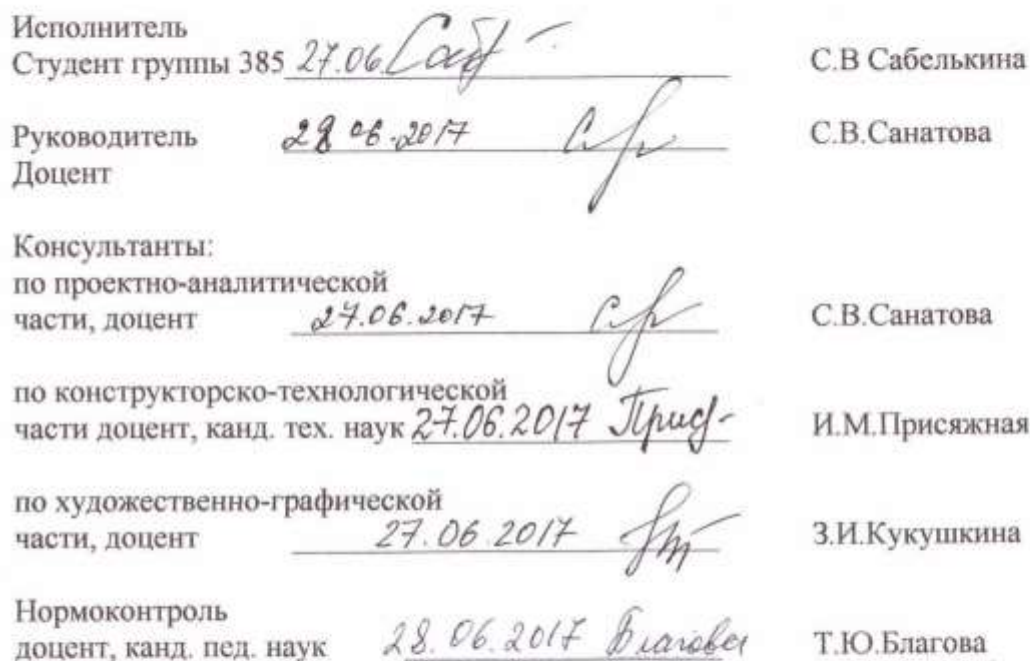 Исполнитель
Студент группы 385 27.06. Саб С.В Сабелькина
Руководитель 28 06.2017 С.В.Санатова
Доцент
Консультанты:
по проектно-аналитической
части, доцент 27.06.2017 С.В.Санатова
по конструкторско-технологической
части доцент, канд. тех. наук 27.06.2017 И.М.Присяжная
по художественно-графической
части, доцент 27.06.2017 З.И.Кукушкина
Нормоконтроль
доцент, канд. пед. наук 28.06.2017 Т.Ю.Благова